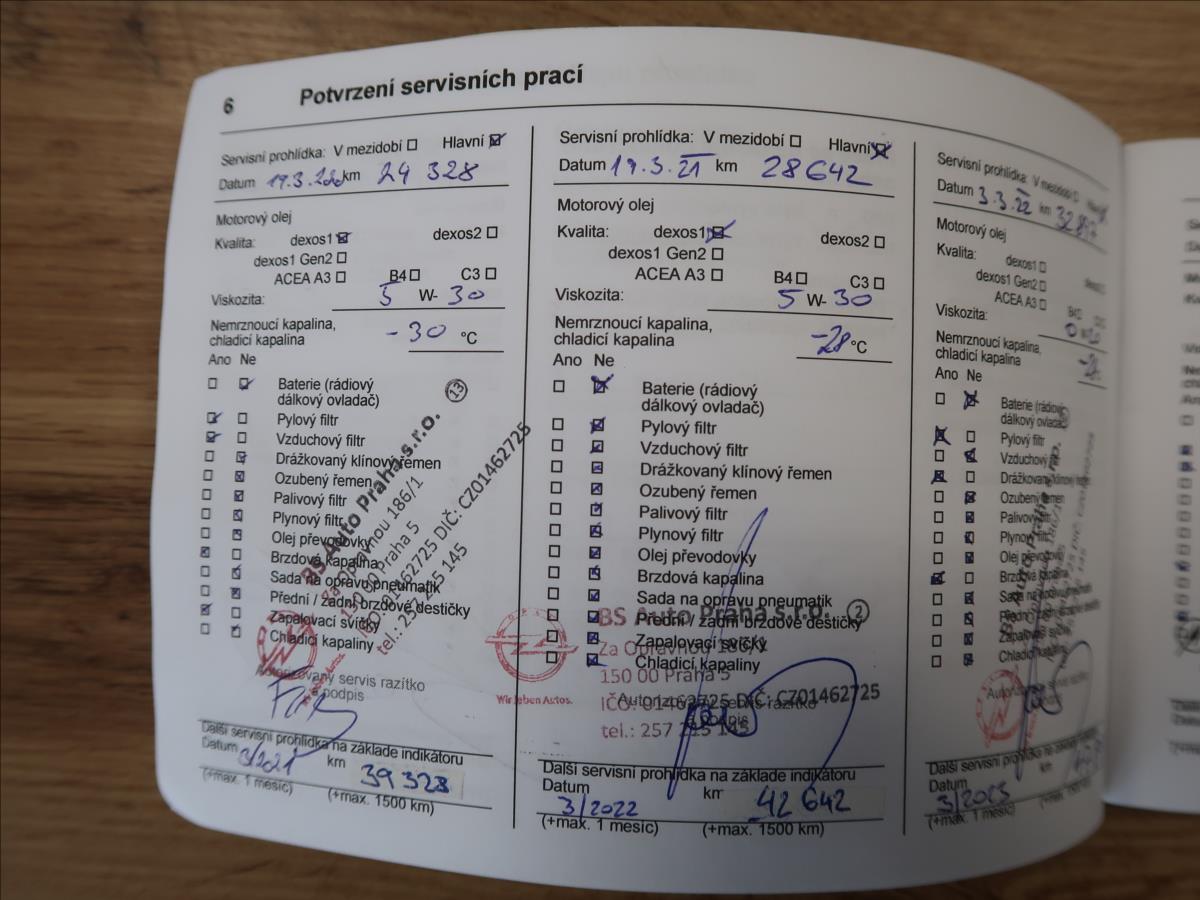 6
Potvrzení servisních prací
Servisní prohlídka: V mezidobí Hlavní
Datum 19.3.2020 km 24 328
Motorový olej
Kvalita: dexos1 dexos2
dexos1 Gen2
ACEA A3 B4 C3
Viskozita: 5 W- 30
Nemrznoucí kapalina, -30 °C
chladicí kapalina
Ano Ne
Baterie (rádiový
dálkový ovladač)
Pylový filtr
Vzduchový filtr
Drážkovaný klínový řemen
Ozubený řemen
Palivový filtr
Plynový filtr
Olej převodovky
Brzdová kapalina
Sada na opravu pneumatik
Přední / zadní brzdové destičky
Zapalovací svíčky
Chladicí kapaliny
BS Auto Praha s.r.o. 13
Za Opravnou 186/1
150 00 Praha 5
IČO: 01462725 DIČ: CZ01462725
tel.: 257 215 145
Autorizovaný servis razítko
a podpis
Další servisní prohlídka na základe indikátoru
Datum 3/2021 km 39 328
(+max. 1 mesíc) (+max. 1500 km)
Servisní prohlídka: V mezidobí Hlavní
Datum 19.3.21 km 28642
Motorový olej
Kvalita: dexos1 dexos2
dexos1 Gen2
ACEA A3 B4 C3
Viskozita: 5 W- 30
Nemrznoucí kapalina, -28 °C
chladicí kapalina
Ano Ne
Baterie (rádiový
dálkový ovladač)
Pylový filtr
Vzduchový filtr
Drážkovaný klínový řemen
Ozubený řemen
Palivový filtr
Plynový filtr
Olej převodovky
Brzdová kapalina
Sada na opravu pneumatik
Přední / zadní brzdové destičky
Zapalovací svíčky
Chladicí kapaliny
BS Auto Praha s.r.o. 2
Za Opravnou 186/1
150 00 Praha 5
IČO: 01462725 DIČ: CZ01462725
tel.: 257 215 145
Wir leben Autos.
Autorizovaný servis razítko
a podpis
Další servisní prohlídka na základe indikátoru
Datum km
3/2022 42 642
(+max. 1 mesíc) (+max. 1500 km)
Servisní prohlídka: V mezidobí
Datum 3.3.22 km
Motorový olej
Kvalita: dexos1
dexos1 Gen2
ACEA A3
Viskozita:
Nemrznoucí kapalina,
chladicí kapalina
Ano Ne
Baterie (rádiový
dálkový ovladač)
Pylový filtr
Vzduchový filtr
Drážkovaný klínový
Ozubený řemen
Palivový filtr
Plynový filtr
Olej převodovky
Brzdová kapalina
Sada na opravu
Přední / zadní brzdové
Zapalovací svíčky
Chladicí kapaliny
servis razítko
Další servisní prohlídka na základe
Datum km
3/2023
(+max. 1 mesíc)